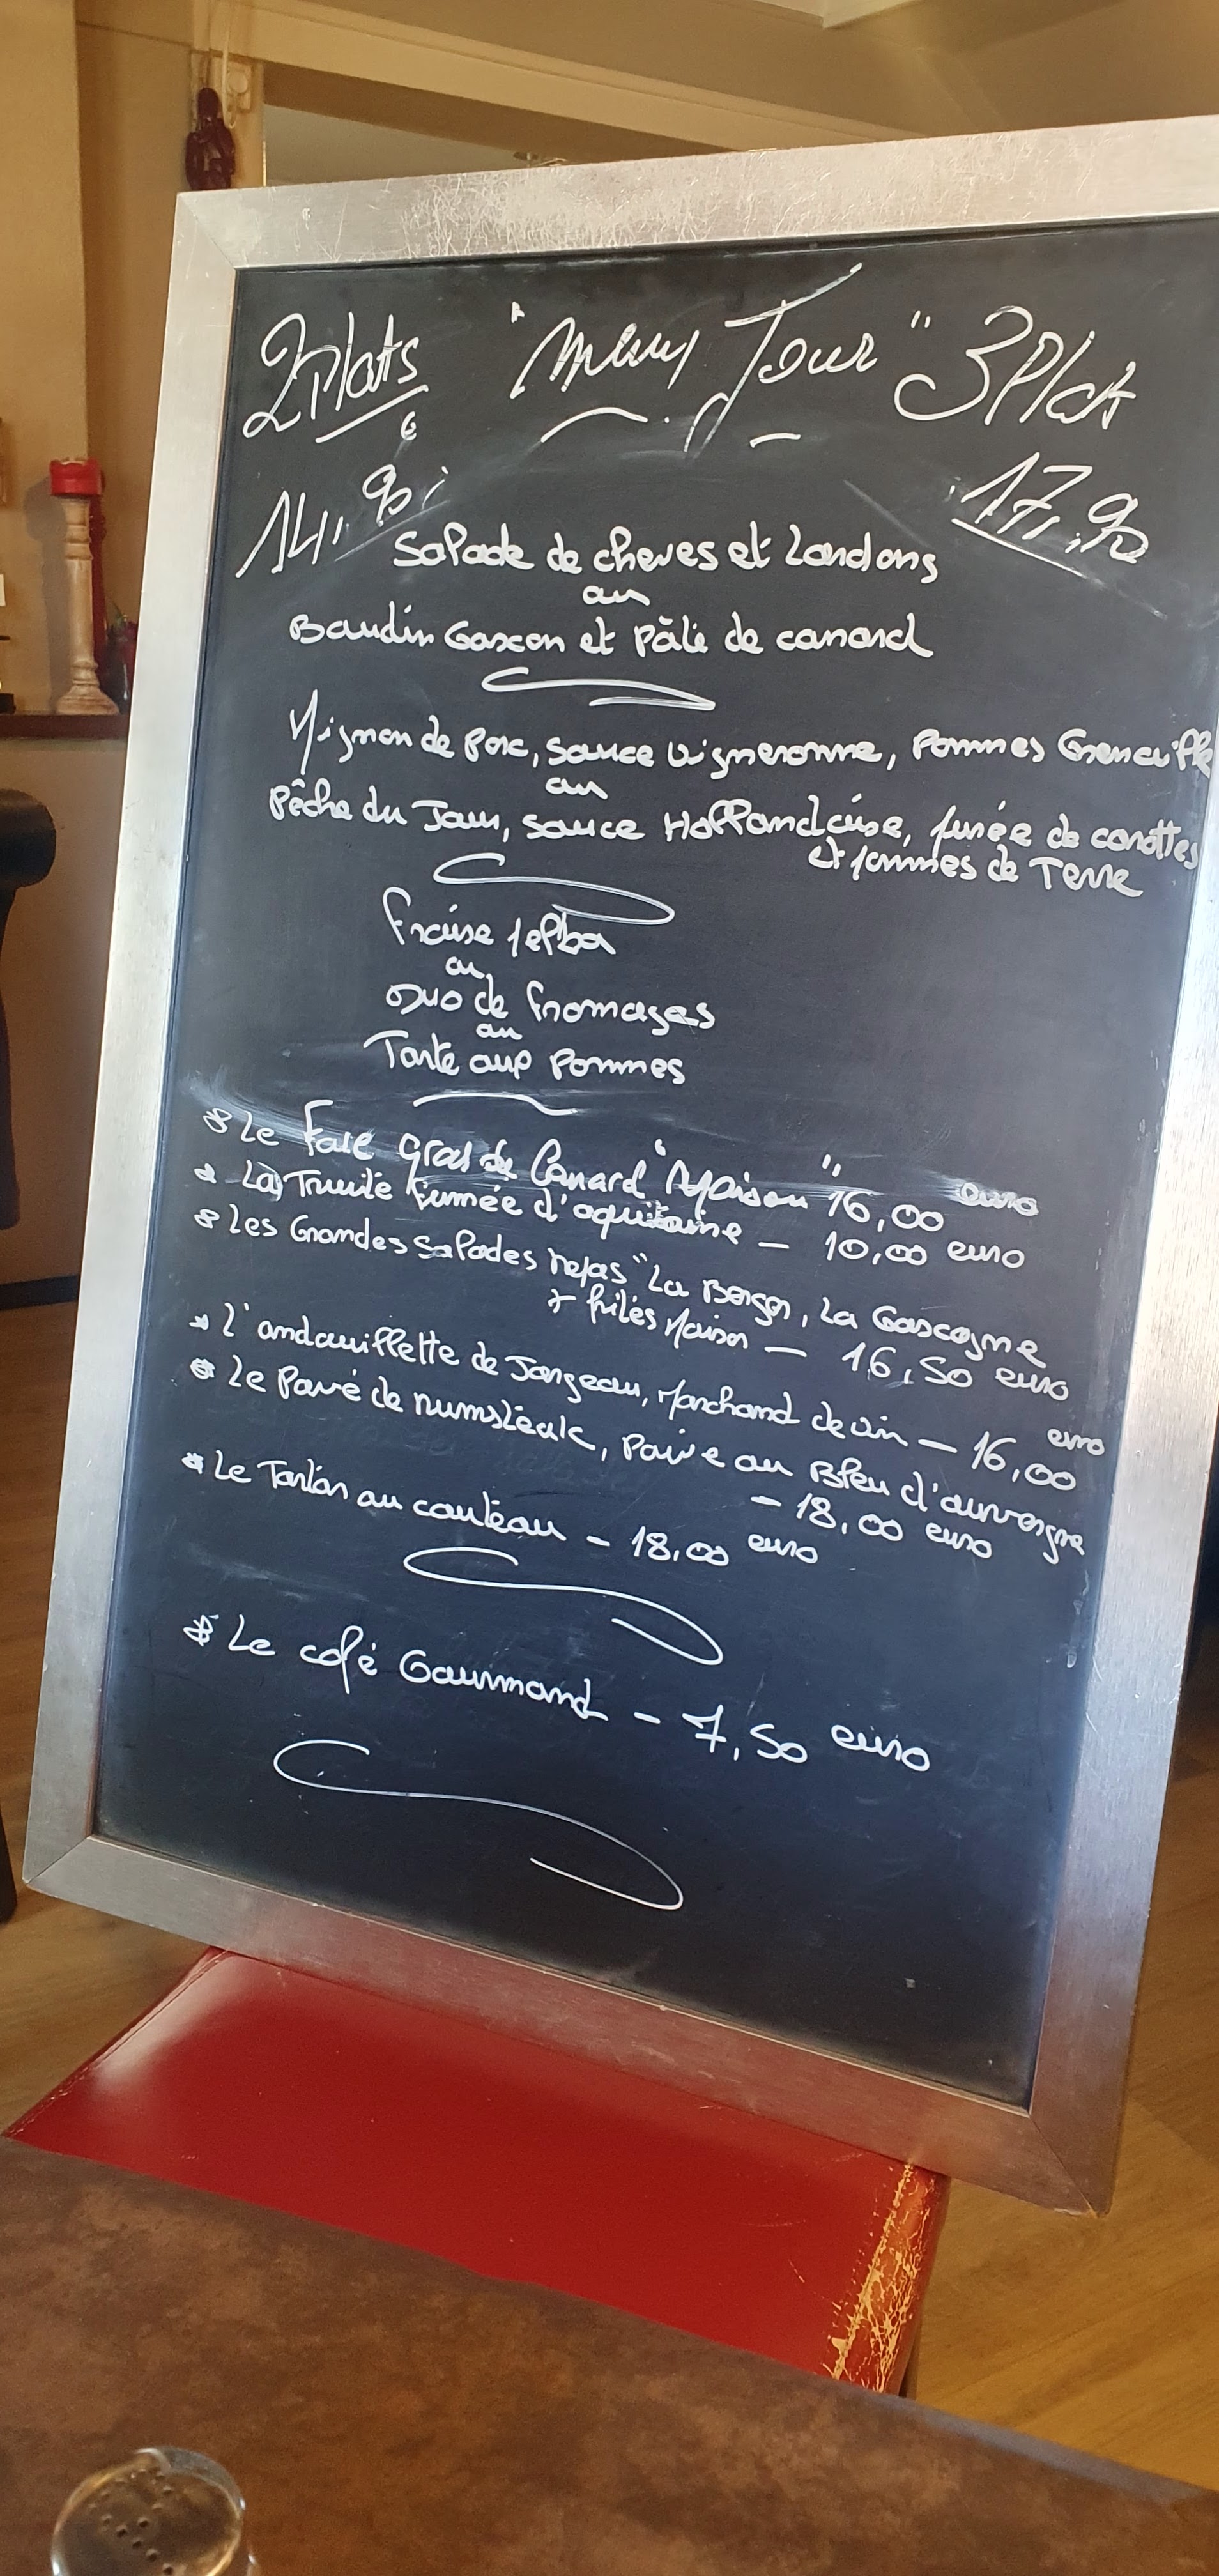 2 Plats "Menu Jour" 3 Plats
14,90 € 17,90
Salade de chèvres et Lardons
ou
Boudin Gascon et Pâté de canard
Mignon de Porc, sauce vigneronne, Pommes Grenaille
ou
Pêche du Jour, sauce Hollandaise, purée de carottes
et pommes de Terre
Fraise Melba
ou
Duo de fromages
ou
Tarte aux Pommes
* Le Foie gras de Canard "Maison" 16,00 euro
* La Truite fumée d'aquitaine - 10,00 euro
* Les Grandes Salades repas "La Berger, La Gascogne
+ frites Maison - 16,50 euro
* L'andouillette de Jargeau, Marchand de vin - 16,00 euro
* Le Pavé de rumsteak, Poivre ou Bleu d'auvergne
- 18,00 euro
* Le Tartare au couteau - 18,00 euro
* Le café Gourmand - 7,50 euro